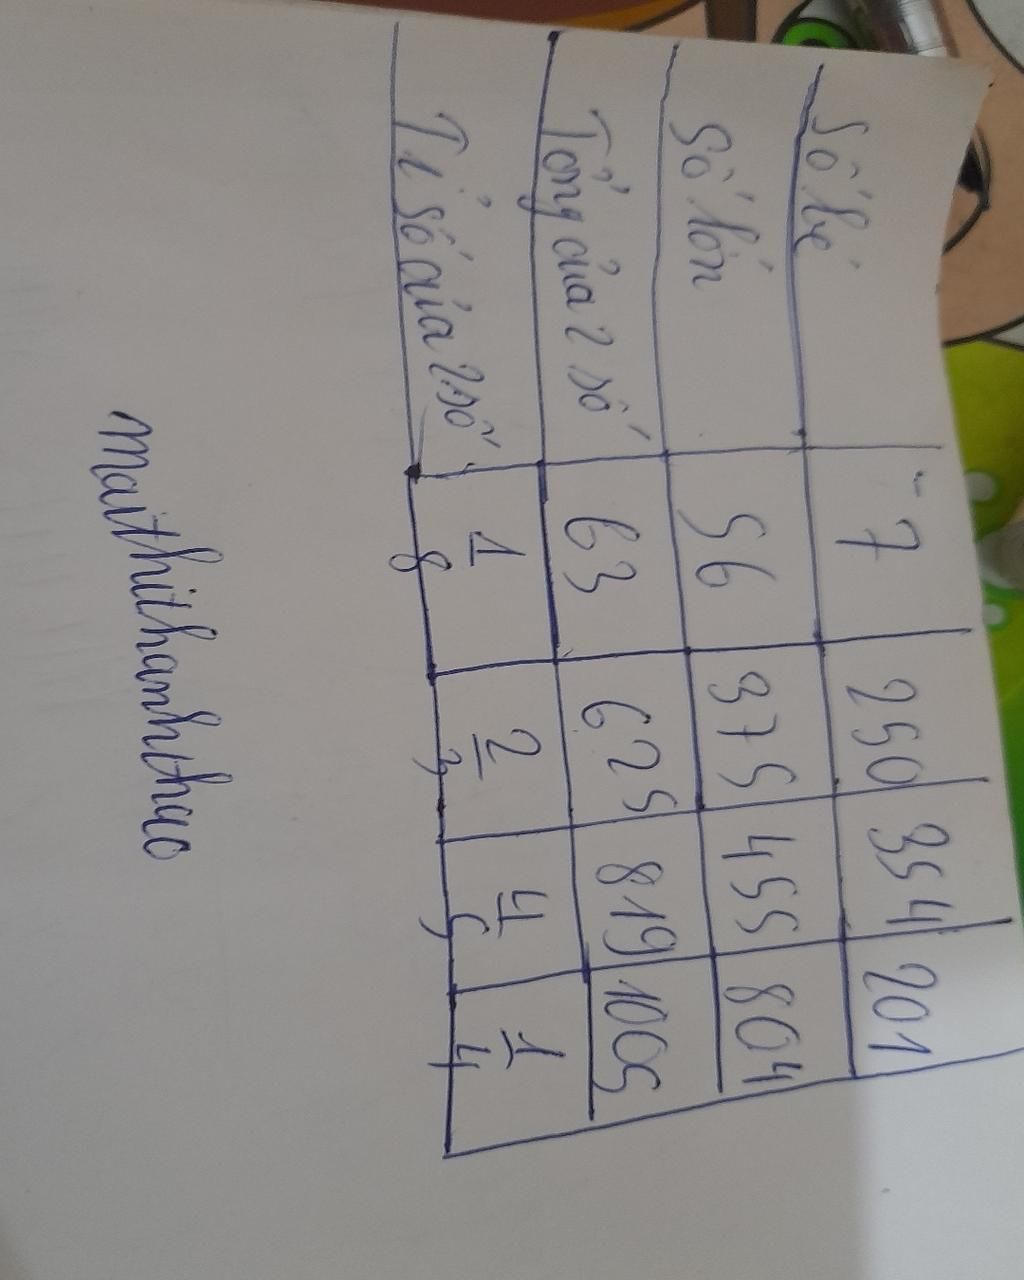 Số bé 7 250 354 201
Số lớn 56 375 455 804
Tổng của 2 số 63 625 819 1005
Tỉ số của 2 số 1/8 2/3 4/5 1/4
maithithanhthao